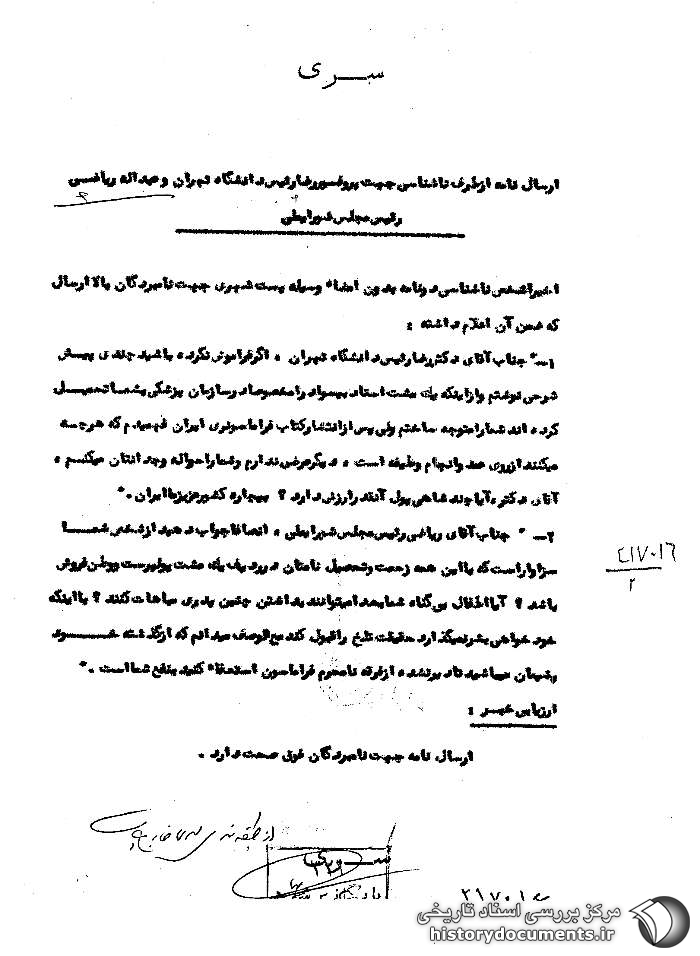 سـری
ارسال نامه از طرف ناشناسی جهت پروفسور رضا رئیس دانشگاه تهران و عبداله ریاضی
رئیس مجلس شورایملی
اخیرا شخص ناشناسی دو نامه بدون امضاء وسیله پست شهری جهت نامبردگان بالا ارسال
که ضمن آن اعلام داشته :
۱ــ" جناب آقای دکتر رضا رئیس دانشگاه تهران ، اگر فراموش نکرده باشید چندی پیش
شرحی نوشتم و از اینکه یک مشت استاد بیسواد را مخصوصا در سازمان پزشکی بشما تحمیل
کرده اند شما را متوجه ساختم ولی پس از انتشار کتاب فراماسونری ایران فهمیدم که هرچه
میکنند از روی عمد و انجام وظیفه است ، دیگر عرض ندارم و شما را حواله وجدانتان میکنم ،
آقای دکتر ، آیا چند شاهی پول آنقدر ارزش دارد ؟ بیچاره کشور عزیز ما ایران ."
۲ــ " جناب آقای ریاضی رئیس مجلس شورایملی ، انصافا جواب دهید از شخص شما
سزاوار است که با این همه زحمت و تحصیل نامتان در ردیف یک مشت پولپرست و وطن فروش
باشد ؟ آیا اطفال بی گناه شما بعدا میتوانند بداشتن چنین پدری مباهات کنند ؟ با اینکه
خودخواهی بشر نمیگذارد حقیقت تلخ را قبول کند مع الوصف میدانم که از گذشته خود
پشیمان میباشید تا دیر نشده از فرقه نامحرم فراماسون استعفاء کنید بنفع شما است ."
ارزیابی خبـر :
ارسال نامه جهت نامبردگان فوق صحت دارد .
۲۱۷۰۱۶
۲
از طبقه بندی
سـری
۲۱۷۰۱
مرکز بررسی اسناد تاریخی
historydocuments.ir